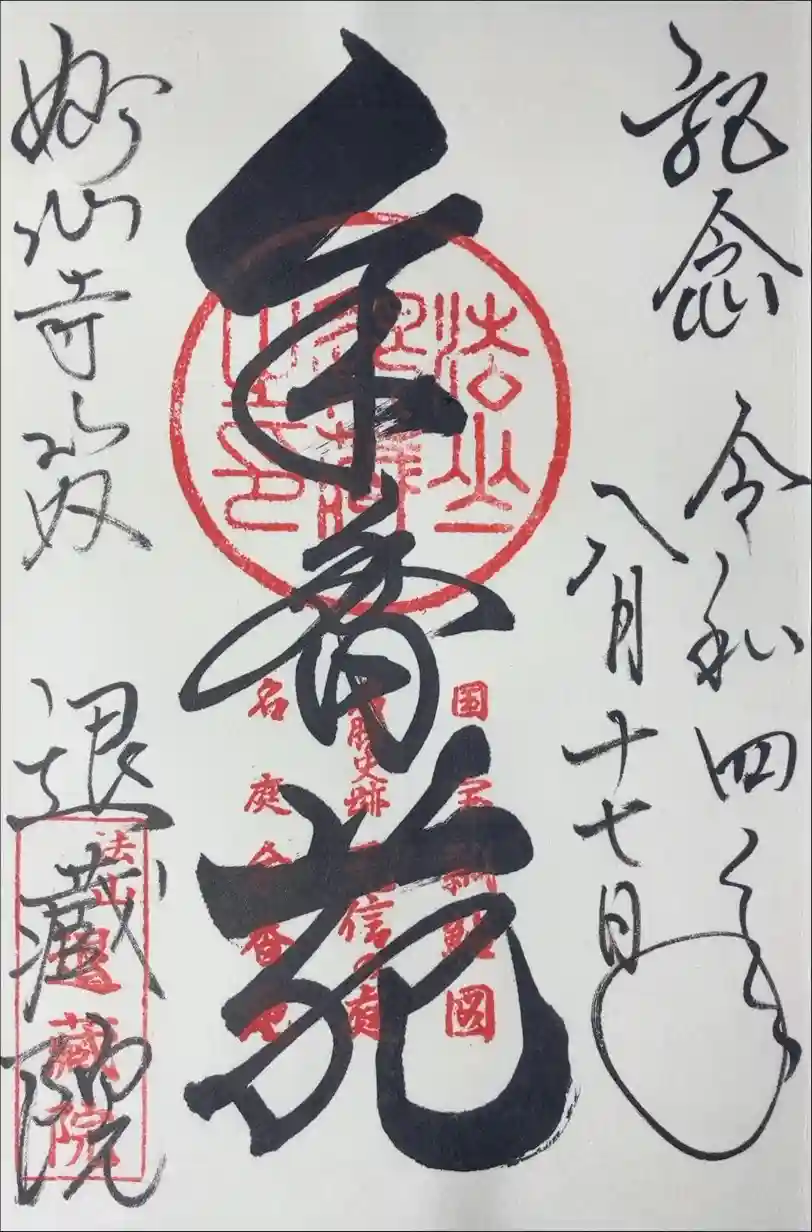 記念 令和四年
八月十七日
余香苑
法山
退蔵
之印
国宝瓢鮎図
史跡 元信の庭
名庭余香苑
妙心寺
退蔵院
法山退蔵院